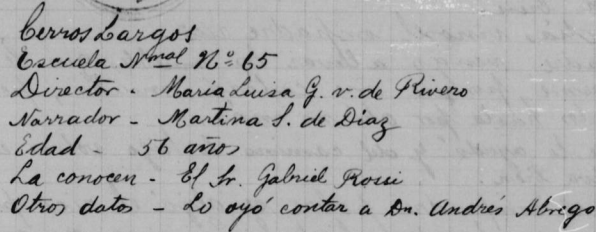 Cerros Largos
Escuela Nmal Nº 65
Director - María Luisa G. v. de Rivero
Narrador - Martina S. de Díaz
Edad - 56 años
La conocen - El Sr. Gabriel Rossi
Otros datos - Lo oyó contar a Dn. Andrés Abrego